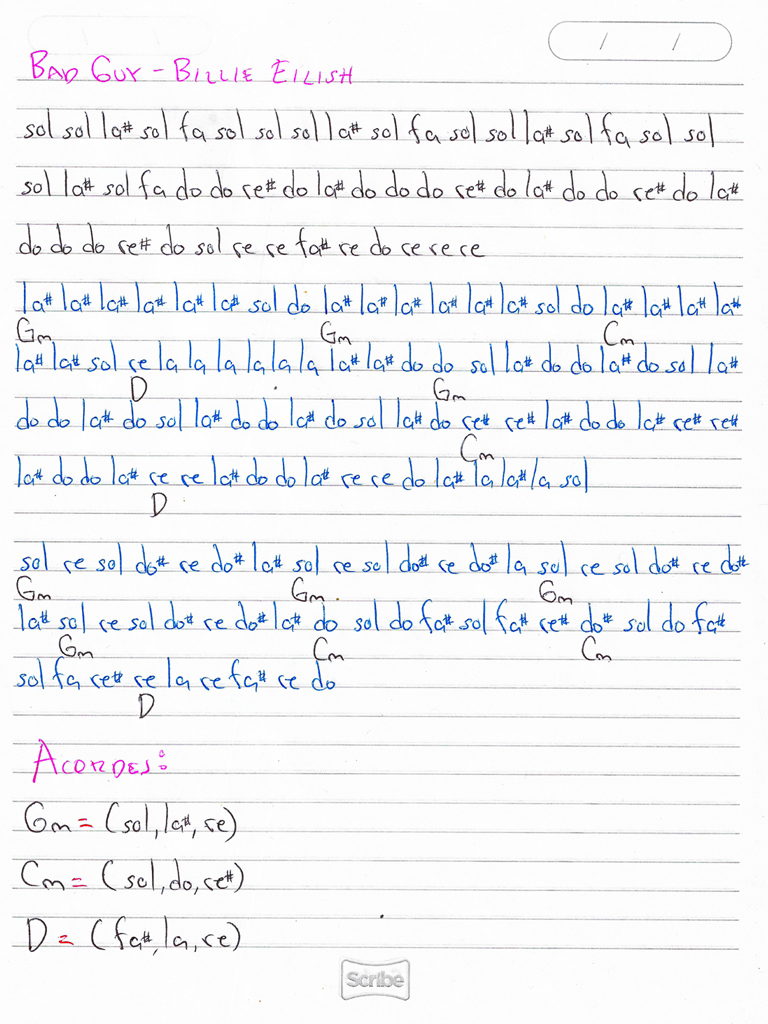 / /
BAD GUY - BILLIE EILISH
sol sol la# sol fa sol sol sol la# sol fa sol sol la# sol fa sol sol
sol la# sol fa do do re# do la# do do do re# do la# do do re# do la#
do do do re# do sol re re fa# re do re re re
la# la# la# la# la# la# sol do la# la# la# la# la# la# sol do la# la# la# la#
Gm Gm Cm
la# la# sol re la la la la la la la# la# do do sol la# do do la# do sol la#
D Gm
do do la# do sol la# do do la# do sol la# do re# re# la# do do la# re# re#
Cm
la# do do la# re re la# do do la# re re do la# la la# la sol
D
sol re sol do# re do# la# sol re sol do# re do# la sol re sol do# re do#
Gm Gm. Gm
la# sol re sol do# re do# la# do sol do fa# sol fa# re# do# sol do fa#
Gm Cm Cm
sol fa re# re la re fa# re do
D
ACORDES:
Gm = (sol, la#, re)
Cm = (sol, do, re#)
D = (fa#, la, re)
Scribe